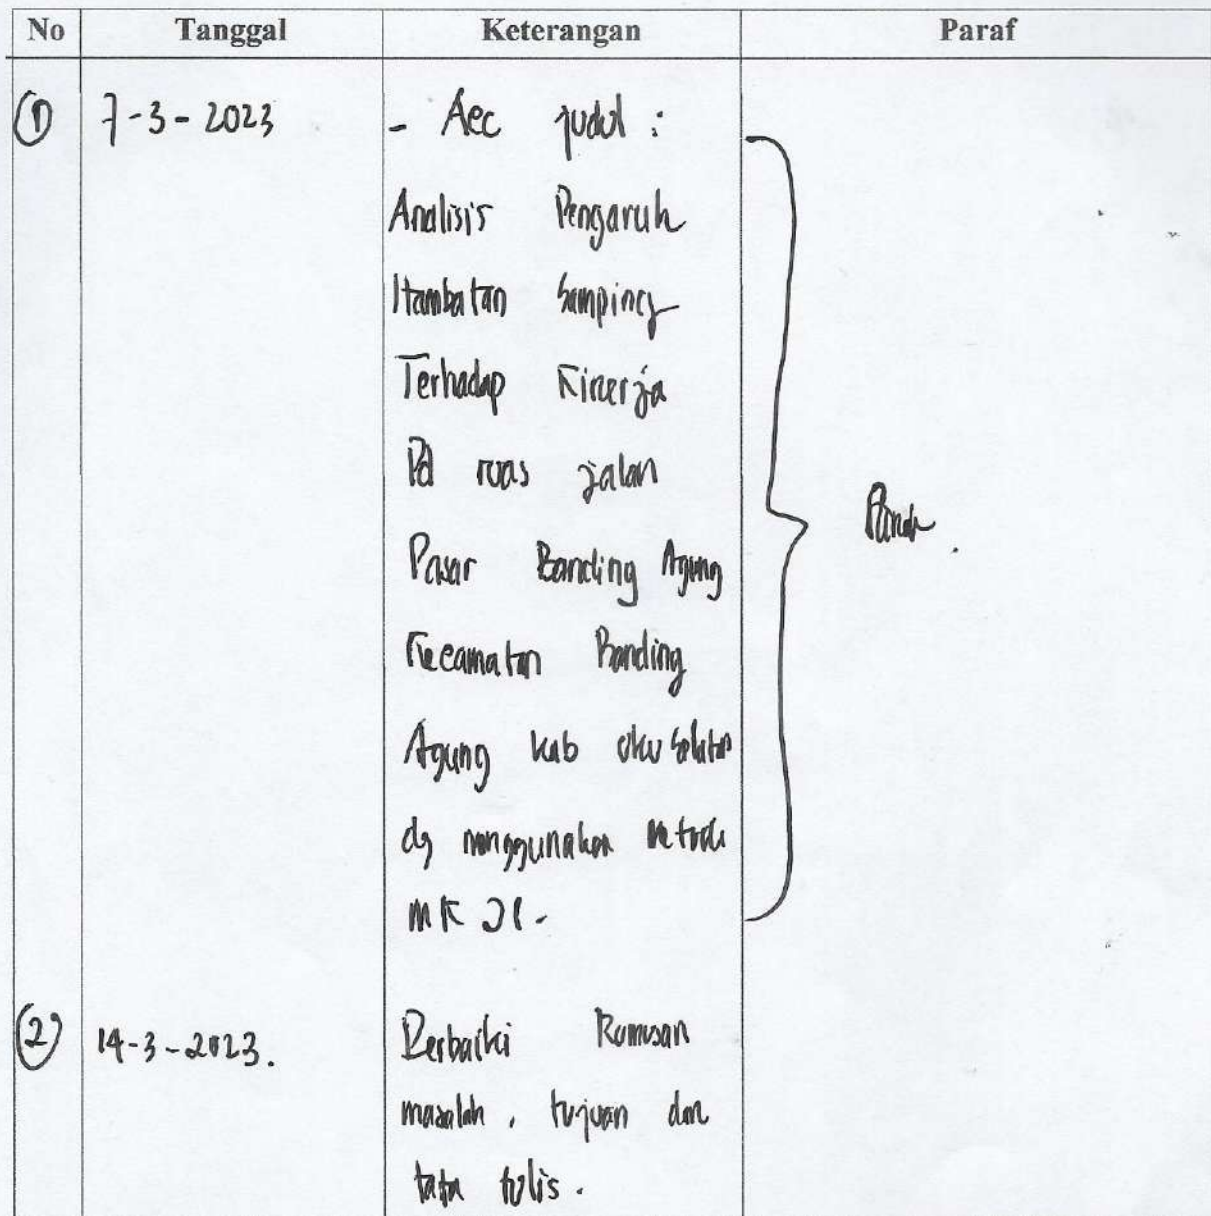 No Tanggal Keterangan Paraf
1 7-3-2023 - Acc judul :
Analisis Pengaruh
Hambatan Samping
Terhadap Kinerja
Pd ruas jalan
Pasar Banding Agung
Kecamatan Banding
Agung kab oku Selatan
dg menggunakan metode
MKJI.
2 14-3-2023. Perbaiki Rumusan
masalah, tujuan dan
tata tulis.